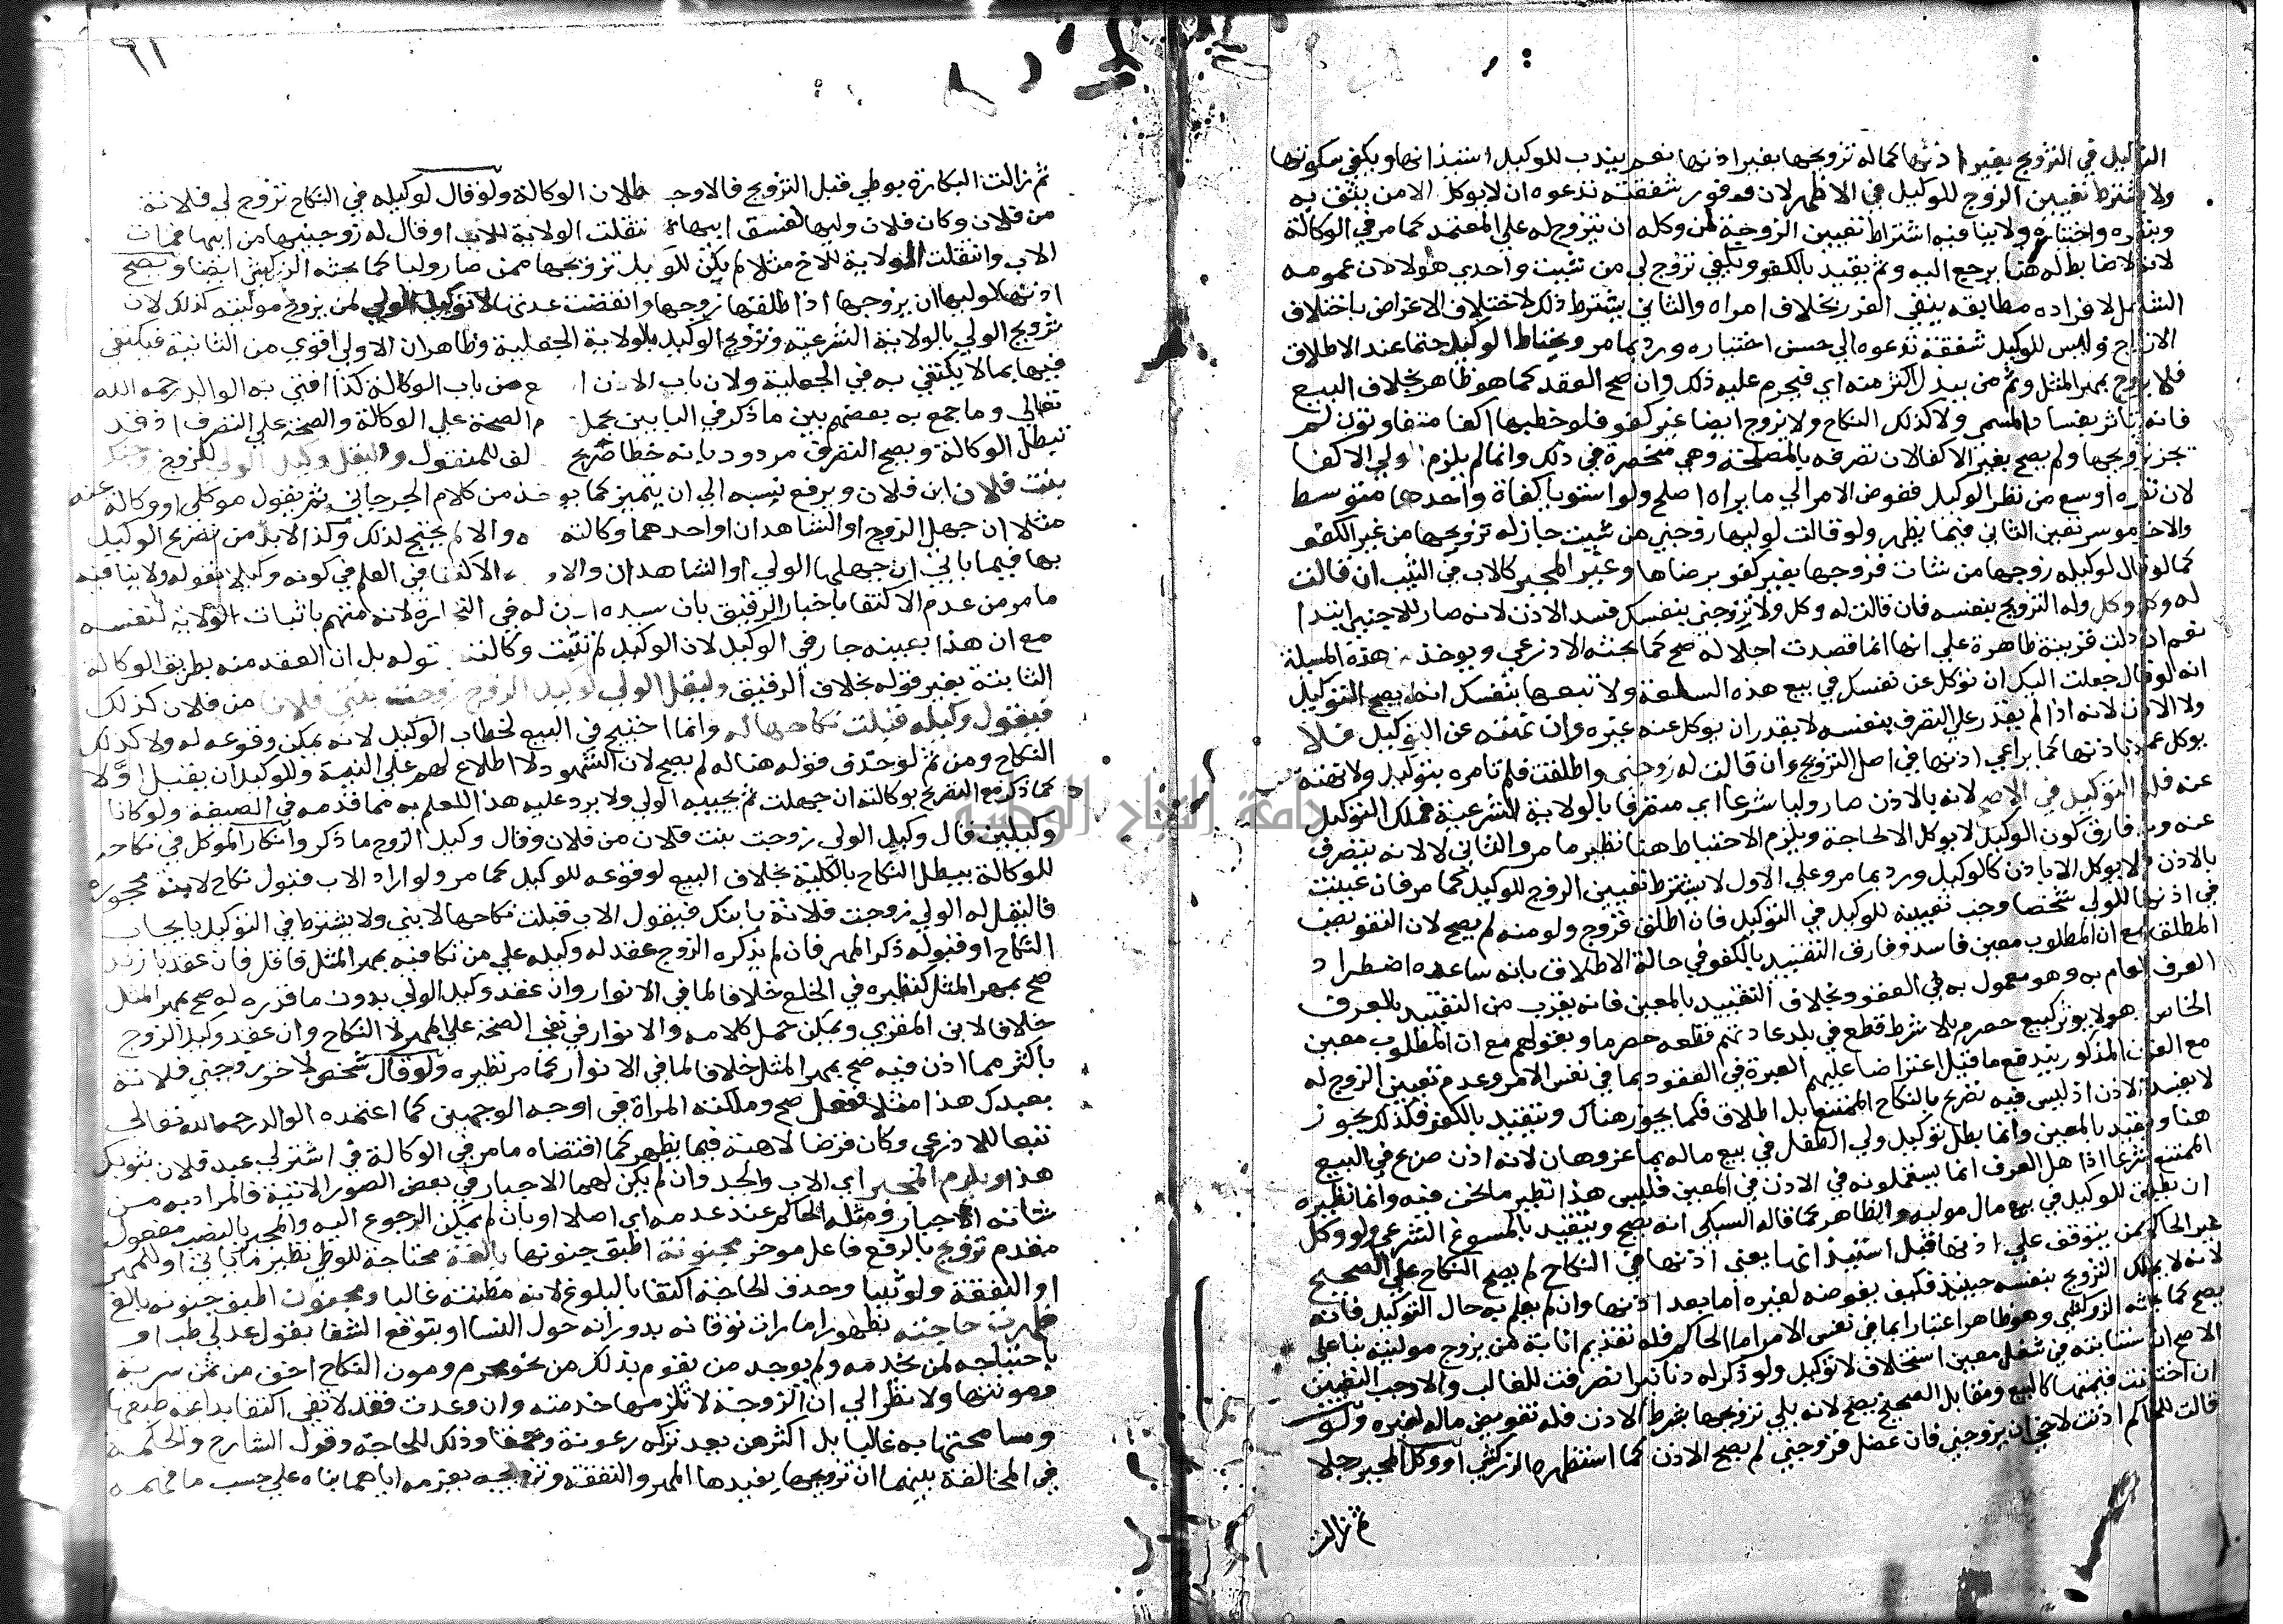 التوكيل في التزويج بغير اذنها كما له تزويجها بغير اذنها نعم يندب للوكيل استيذانها ويكفي سكوتها
ولا يشترط تعيين الزوج للوكيل في الاظهر لان وفور شفقته تدعوه ان لا يوكل الا من يثق به
واختباره ولا ينافيه اشتراط تعيين الزوجة لمن وكله ان يتزوج له علي المعتمد كما مر في الوكالة
لانه لا ضابط له هنا يرجع اليه وثم يتقيد بالكفو ويكفي تزوج لي من شيت واحدي هولا لان عمومه
الشامل لافراده مطابقة ينفي الغرر بخلاف امراه والثاني يشترط ذلك لاختلاف الاغراض باختلاف
الازواج وليس للوكيل شفقة تدعوه الي حسن اختباره ورد بما مر ويحتاط الوكيل حتما عند الاطلاق
فلا يزوج بمهر المثل وثم من يبذل اكثر منه اي فيحرم عليه ذلك وان صح العقد كما هو ظاهر بخلاف البيع
فانه يتاثر بفساد المسمي ولا كذلك النكاح ولا يزوج ايضا غير كفو فلو خطبها اكفا متفاوتون لم
يجز تزويجها ولم يصح بغير الاكفا لان تصرفه بالمصلحة وهي منحصرة في ذلك وانما لم يلزم الولي الاكفا
لان نظره اوسع من نظر الوكيل ففوض الامر الي ما يراه اصلح ولو استويا كفاة واحدهما متوسط
والاخر موسر تعين الثاني فيما يظهر ولو قالت لوليها زوجني من شيت جاز له تزويجها من غير الكفو
كما لو قال لوكيله زوجها من شات فزوجها بغير كفو برضاها وغير المجبر كالاب في الثيب ان قالت
له وكل وكل وله التزويج بنفسه فان قالت له وكل ولا تزوجني بنفسك فسد الاذن لانه صار للاجنبي ابتدا
نعم ان دلت قرينة ظاهرة علي انها انما قصدت اجلاله صح كما بحثه الاذرعي ويوخذ من هذه المسيلة
انه لو قال جعلت اليك ان توكل عن نفسك في بيع هذه السلعة ولا تبعها بنفسك انه لا يصح التوكيل
ولا الاذن لانه اذا لم يقدر علي التصرف بنفسه لا يقدر ان يوكل عنه غيره وان نهته عن التوكيل فلا
يوكل عملا باذنها كما يراعي اذنها في اصل التزويج وان قالت له زوجني واطلقت فلم تامره بتوكيل ولا نهته
عنه فله التوكيل في الاصح لانه بالاذن صار وليا شرعا اي متصرفا بالولاية الشرعية فملك التوكيل
عنه وبه فارق كون الوكيل لا يوكل الا لحاجة ويلزم الاحتياط هنا نظير ما مر والثاني لا لانه يتصرف
بالاذن فلا يوكل الا باذن كالوكيل ورد بما مر وعلي الاول لا يشترط تعيين الزوج للوكيل كما مر فان عينت
في اذنها للولي شخصا وجب تعيينه للوكيل في التوكيل فان اطلق فزوج ولو منه لم يصح لان التفويض
المطلق مع ان المطلوب معين فاسد وفارق التقييد بالكفو في حالة الاطلاق بانه ساعده اضطراد
العرف العام به وهو معمول به في العقود بخلاف التقييد بالمعين فانه يقرب من التقييد بالعرف
الخاص وهو لا يوثر كبيع حصرم بلا شرط قطع في بلد عادتهم قطعه حصرما وبقولهم مع ان المطلوب معين
مع الفرق المذكور يندفع ما قيل اعتراضا عليهم العبرة في العقود بما في نفس الامر وعدم تعيين الزوج له
لا يفسد الاذن اذ ليس فيه تصريح بالنكاح الممتنع بل اطلاق فكما يجوز هناك ويتقيد بالكفو فكذلك يجوز
هنا ويتقيد بالمعين وانما بطل توكيل ولي الطفل في بيع ماله بما عز وهان لانه اذن صرع في البيع
الممتنع شرعا اذا هل العرف انما يستعملونه في الاذن في المعين فليس هذا نظير ما نحن فيه وانما نظيره
ان يطلق للوكيل في بيع مال موليه والظاهر كما قاله السبكي انه يصح ويتقيد بالمسوغ الشرعي ولو وكل
غير الحاكم من يتوقف علي اذنها قبل استيذانها يعني اذنها في النكاح لم يصح النكاح علي الصحيح
لانه لا يملك التزويج بنفسه حينيذ فكيف يفوضه لغيره اما بعد اذنها وان لم يعلم به حال التوكيل فانه
يصح كما بحثه الزركشي وهو ظاهر اعتبارا بما في نفس الامر اما الحاكم فله تقديم انابة من يزوج موليته بناء علي
الاصح ان استنابته في شغل معين استخلاف لا توكيل ولو ذكر له دنانير انصرفت للغالب والا وجب التعيين
ان اختلفت قيمتها كالبيع ومقابل الصحيح يصح لانه يلي تزويجها بشرط الاذن فله تفويض ماله لغيره ولو
قالت للحاكم اذنت لاخي ان يزوجني فان عضل فزوجني لم يصح الاذن كما استظهره الزركشي او وكل المجبر رجلا
ثم زالت
٦١
ثم زالت البكارة بوطي قبل التزويج فالاوجه بطلان الوكالة ولو قال لوكيله في النكاح تزوج لي فلانة
من فلان وكان فلان وليها لفسق ابيها ثم انتقلت الولاية للاب او قال له زوجنيها من ابيها فمات
الاب وانتقلت الولاية للاخ مثلا لم يكن للوكيل تزويجها ممن صار وليا كما بحثه الزركشي ايضا ويصح
اذنها لوليها ان يزوجها اذا طلقها زوجها وانقضت عدتها لا توكيل الولي لمن يزوج موليته كذلك لان
تزويج الولي بالولاية الشرعية وتزويج الوكيل بالولاية الجعلية وظاهر ان الاولي اقوي من الثانية فيكتفي
فيها بما لا يكتفي به في الجعلية ولان باب الاذن اوسع من باب الوكالة كذا افتي به الوالد رحمه الله
تعالي وما جمع به بعضهم بين ما ذكر في البابين بحمل عدم الصحة علي الوكالة والصحة علي التصرف اذ قد
تبطل الوكالة ويصح التصرف مردود بانه خطا صريح مخالف للمنقول وليقل وكيل الولي للزوج زوجتك
بنت فلان ابن فلان ويرفع نسبه الي ان يتميز كما يوخذ من كلام الجرجاني ثم يقول موكلي او وكالة عنه
مثلا ان جهل الزوج او الشاهدان او احدهما وكالته عنه والا لم يحتج لذلك وكذا لابد من تصريح الوكيل
بها فيما ياتي ان جهلها الولي او الشاهدان والاوجه الاكتفا في العلم في كونه وكيلا بقوله ولا ينافيه
ما مر من عدم الاكتفا باخبار الرقيق بان سيده اذن له في التجارة لانه متهم باثبات الولاية لنفسه
مع ان هذا بعينه جار في الوكيل لان الوكيل لم تثبت وكالته بقوله بل ان العقد منه بطريق الوكالة
الثابتة بغير قوله بخلاف الرقيق وليقل الولي لوكيل الزوج زوجت بنتي فلانا من فلان كذلك
فيقول وكيله قبلت نكاحها له وانما احتيج في البيع لخطاب الوكيل لانه يمكن وقوعه له ولا كذلك
النكاح ومن ثم لو حذف قوله هنا له لم يصح لان الشهود لا اطلاع لهم علي النية وللوكيل ان يقبل اولا
كما ذكر مع التصريح بوكالته ان جهلت ثم يجيبه الولي ولا يرد عليه هذا للعلم به مما قدمه في الصيغة ولو كانا
وكيلين قال وكيل الولي زوجت بنت فلان من فلان وقال وكيل الزوج ما ذكر وانكار الموكل في نكاحه
للوكالة يبطل النكاح بالكلية بخلاف البيع لوقوعه للوكيل كما مر ولو اراد الاب قبول نكاح لابنه محجوره
فاليقل له الولي زوجت فلانة بابنك فيقول الاب قبلت نكاحها لابني ولا يشترط في التوكيل بايجاب
النكاح او قبوله ذكر المهر فان لم يذكره الزوج عقد له وكيله علي من تكافيه بمهر المثل فاقل فان عقد بازيد
صح بمهر المثل كنظيره في الخلع خلافا لما في الانوار وان عقد وكيل الولي بدون ما قدره له صح بمهر المثل
خلافا لابن المقري ويمكن حمل كلامه والانوار في نفي الصحة علي المهر لا النكاح وان عقد وكيل الزوج
باكثر مما اذن فيه صح بمهر المثل خلافا لما في الانوار كما مر نظيره ولو قال شخص لاخر زوجني فلانة
بعبدك هذا مثلا ففعل صح وملكته المراة في اوجه الوجهين كما اعتمده الوالد رحمه الله تعالي
تبعا للاذرعي وكان قرضا لا هبة فيما يظهر كما اقتضاه ما مر في الوكالة في اشتر لي عبد فلان بثوبك
هذا ويلزم المجبر اي الاب والجد وان لم يكن لهما الاجبار في بعض الصور الاتية فالمراد به من
شانه الاجبار ومثله الحاكم عند عدمه اي اصلا او بان لم يمكن الرجوع اليه والمجبر بالنصب مفعول
مقدم تزويج بالرفع فاعل موخر مجنونة اطبق جنونها بالغة محتاجة للوطي نظير ما ياتي او للمهر
او النفقة ولو ثيبا وحذف الحاجة اكتفا بالبلوغ لانه مظنته غالبا ومجنون اطبق جنونه بالغ
ظهرت حاجته بظهور امارات توقانه بدورانه حول النسا او بتوقع الشفا بقول عدلي طب او
باحتياجه لمن يخدمه ولم يوجد من يقوم بذلك من نحو محرم ومون النكاح اخف من ثمن سرية
ومونتها ولا نظر الي ان الزوجة لا تلزمها خدمته وان وعدت فقد لا تفي اكتفا بداعية طبعها
ومسامحتها به غاليا بل اكثرهن يعد تركه رعونة وحمقا وذلك للحاجة وقول الشارح والحكمة
في المخالفة بينهما ان تزويجها يفيدها المهر والنفقة وتزويجه يغرمه اياهما بناه علي حسب ما فهمه